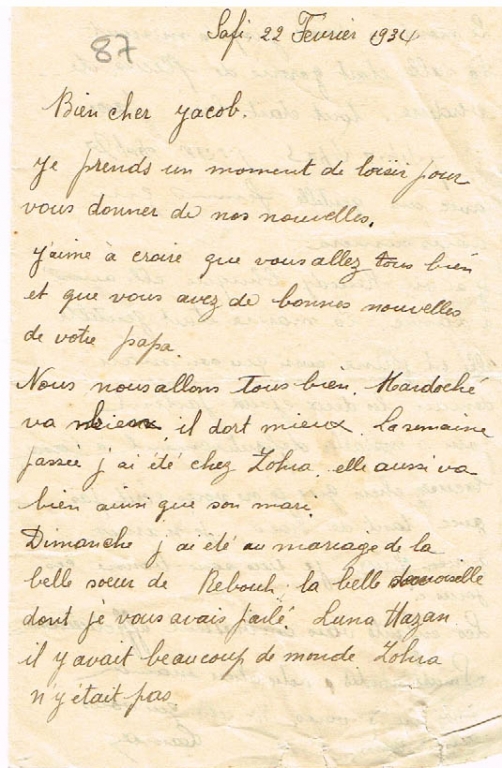 Safi. 22 Février 1934
87
Bien cher Yacob.
Je prends un moment de loisir pour
vous donner de nos nouvelles.
J'aime à croire que vous allez tous bien
et que vous avez de bonnes nouvelles
de votre papa.
Nous nous allons tous bien. Mardoché
va mieux, il dort mieux la semaine
passée j'ai été chez Zohra elle aussi va
bien ainsi que son mari.
Dimanche j'ai été au mariage de la
belle sœur de Rebouh la belle demoiselle
dont je vous avais parlé. Luna Hazan.
il y avait beaucoup de monde. Zohra
n'y était pas